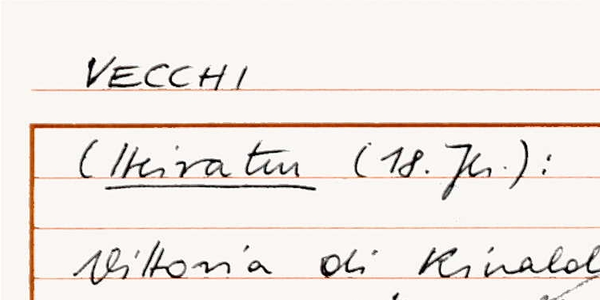 VECCHI
(Heiraten (18. Jh.):
Vittoria di Rinald